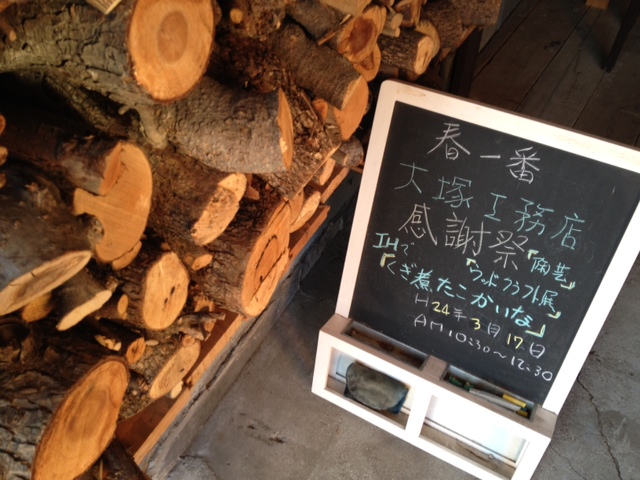 春一番
大塚工務店
感謝祭
「陶芸」
IHで
「くぎ煮たこかいな」
H24年3月17日
AM10:30～12:30